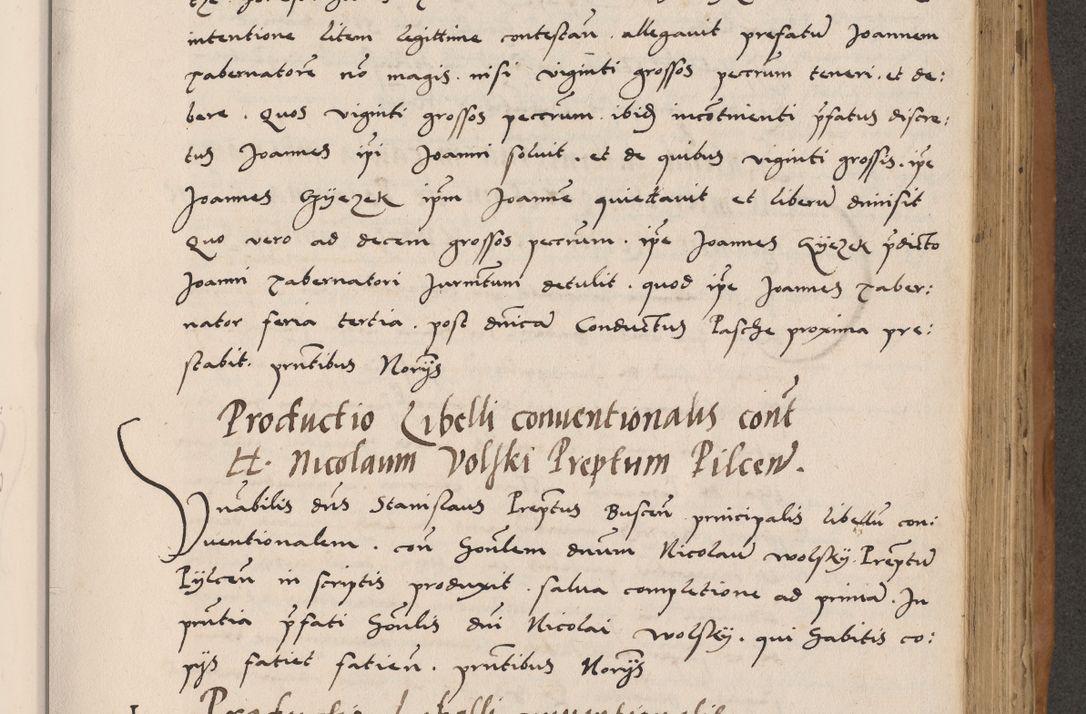 intentione litem legittime contestañ. allegauit prefatũ Joannem
Tabernatorẽ nõ magis. nisi viginti grossos peccũm teneri. et de:
bere. Quos viginti grossos peccuum. ibid incõtinenti p̃fatus discre:
tus Joannes ip̃i Joanni soluit. et de quibus viginti grossis. ip̃e
Joannes Gÿezek ip̃m Joannẽ quiettauit et liberũ dimisit
Quo vero ad decem grossos peccuum. ip̃e Joannes Gÿezek p̃dicto
Joanni Tabernatori Jurm̃tum detulit. quod ip̃e Joannes Taber:
nator feria tertia. post dñicã Conductus Pasche proxima pre:
stabit. pñtibus Norÿs
Productio Libelli conventionalis cont̃
H. Nicolaum Volski Preptum Pilceñ.
Vnãbilis dñs Stanislaus Prep̃tus Busceñ principalis libellũ con:
uentionalem. coñ Hoñlem dnum Nicolaũ wolsky. Prep̃tũ
Pÿlceñ in scriptis produxit. salua completione ad primã. In
pñtia p̃fati Hoñlis dñi Nicolai wolsky. qui habitis co:
pÿs fatiet fatieñ. pñtibus Norÿs
Productio Libelli conuentionalis